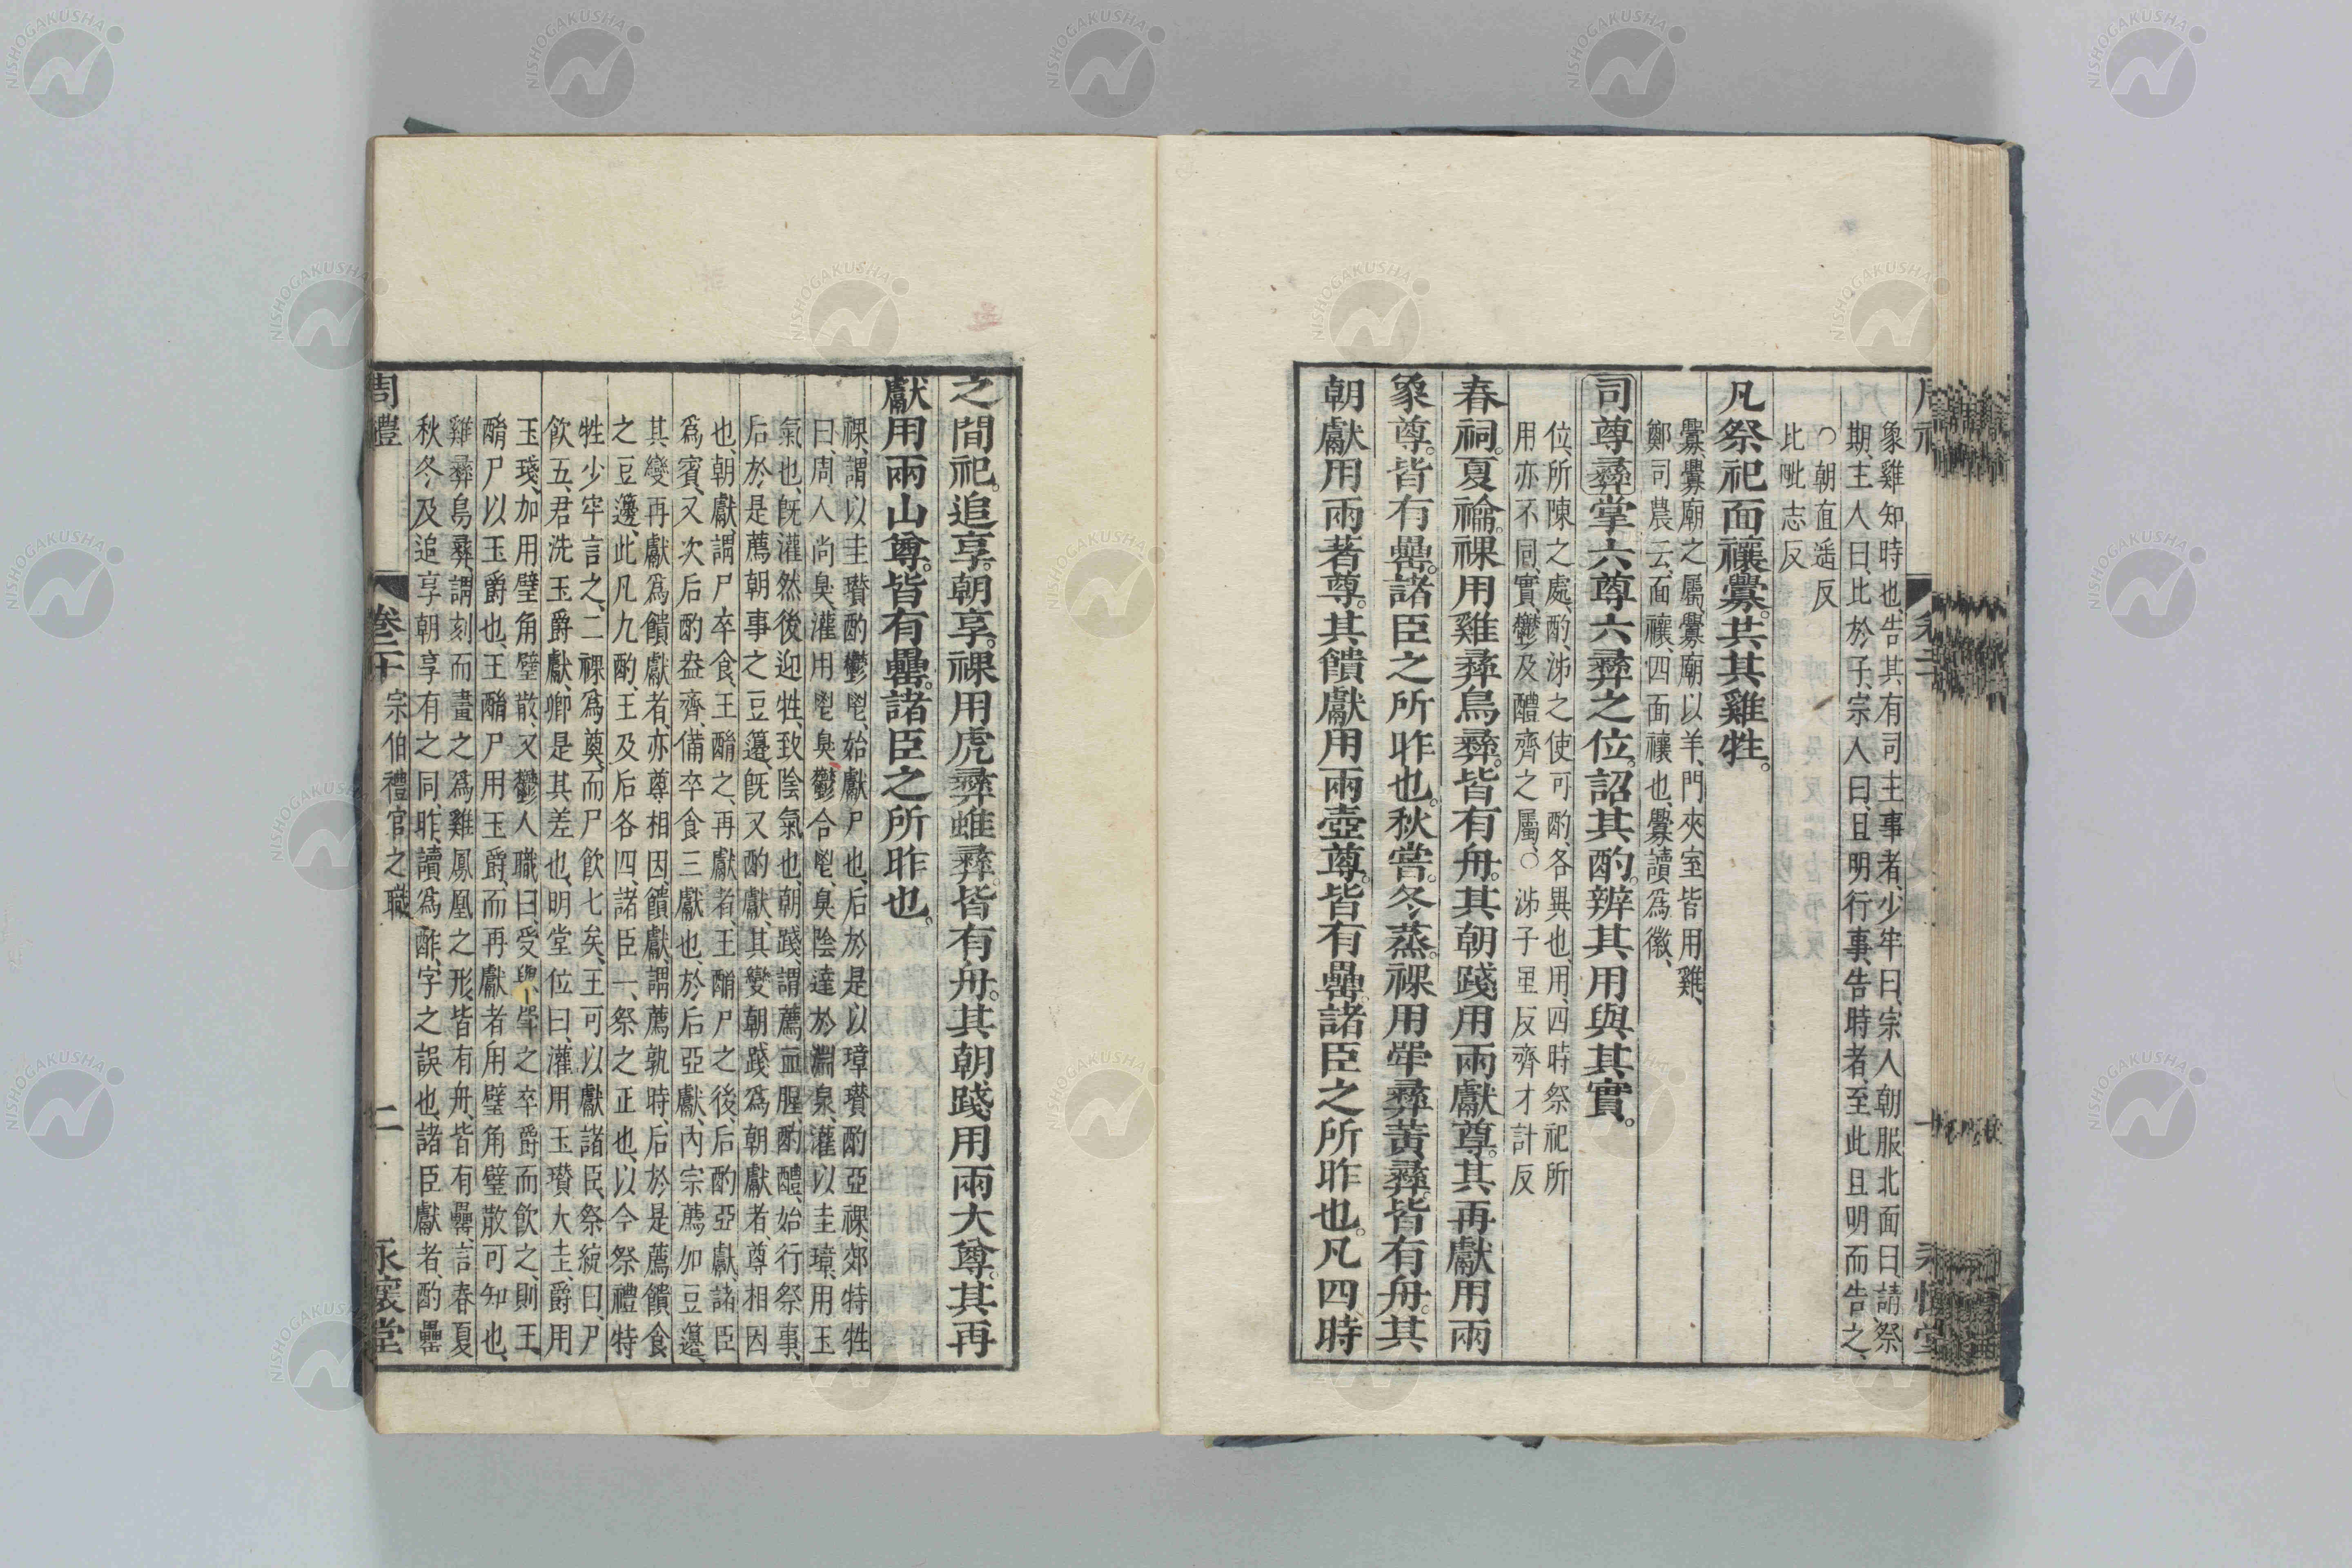 象雞知時也、告其有司主事者、少牢曰、宗人朝服北面曰、請祭
期、主人曰、比於子、宗人曰、旦明行事、告時者、至此旦明而告之、
○朝直遥反
比毗志反
凡祭祀面禳釁。共其雞牲。
釁、釁廟之屬、釁廟以羊、門夾室皆用雞、
鄭司農云、面禳、四面禳也、釁讀爲徽、
司尊彝掌六尊六彝之位。詔其酌。辨其用與其實。
位、所陳之處、酌、泲之使可酌、各異也、用、四時祭祀所
用亦不同、實、鬱及醴齊之屬、○泲子里反齊才計反
春祠。夏禴。祼用雞彝鳥彝。皆有舟。其朝踐用兩獻尊。其再獻用兩
象尊。皆有罍。諸臣之所昨也。秋嘗。冬蒸。祼用斝彝黃彝。皆有舟。其
朝獻用兩著尊。其饋獻用兩壺尊。皆有罍。諸臣之所昨也。凡四時
之間祀。追享。朝享。祼用虎彝蜼彝。皆有舟。其朝踐用兩大尊。其再
獻用兩山尊。皆有罍。諸臣之所昨也。
祼、謂以圭瓚酌鬱鬯、始獻尸也、后於是以璋瓚酌亞祼、郊特牲
曰、周人尚臭、灌用鬯臭、鬱合鬯、臭陰達於淵泉、灌以圭璋、用玉
氣也、旣灌然後迎牲、致陰氣也、朝踐、謂薦血腥、酌醴、始行祭事、
后於是薦朝事之豆籩、旣又酌獻、其變朝踐爲朝獻者、尊相因
也、朝獻、謂尸卒食、王酳之、再獻者、王酳尸之後、后酌亞獻、諸臣
爲賓、又次后酌盎齊、備卒食三獻也、於后亞獻、內宗薦加豆籩、
其變再獻爲饋獻者、亦尊相因、饋獻、謂薦孰時、后於是薦饋食
之豆籩、此凡九酌、王及后各四、諸臣一、祭之正也、以今祭禮特
牲少牢言之、二祼爲奠、而尸飮七矣、王可以獻諸臣、祭統曰、尸
飮五、君洗玉爵獻卿、是其差也、明堂位曰、灌用玉瓚大圭、爵用
玉琖、加用璧角璧散、又鬱人職曰、受斝之卒爵而飮之、則王
酳尸以玉爵也、王酳尸用玉爵、而再獻者用璧角璧散可知也、
雞彝鳥彝、謂刻而畫之爲雞鳳凰之形、皆有舟、皆有罍、言春夏
秋冬及追享朝享有之同、昨、讀爲酢、字之誤也、諸臣獻者、酌罍
周禮 卷二十 宗伯禮官之職 二 永懷堂